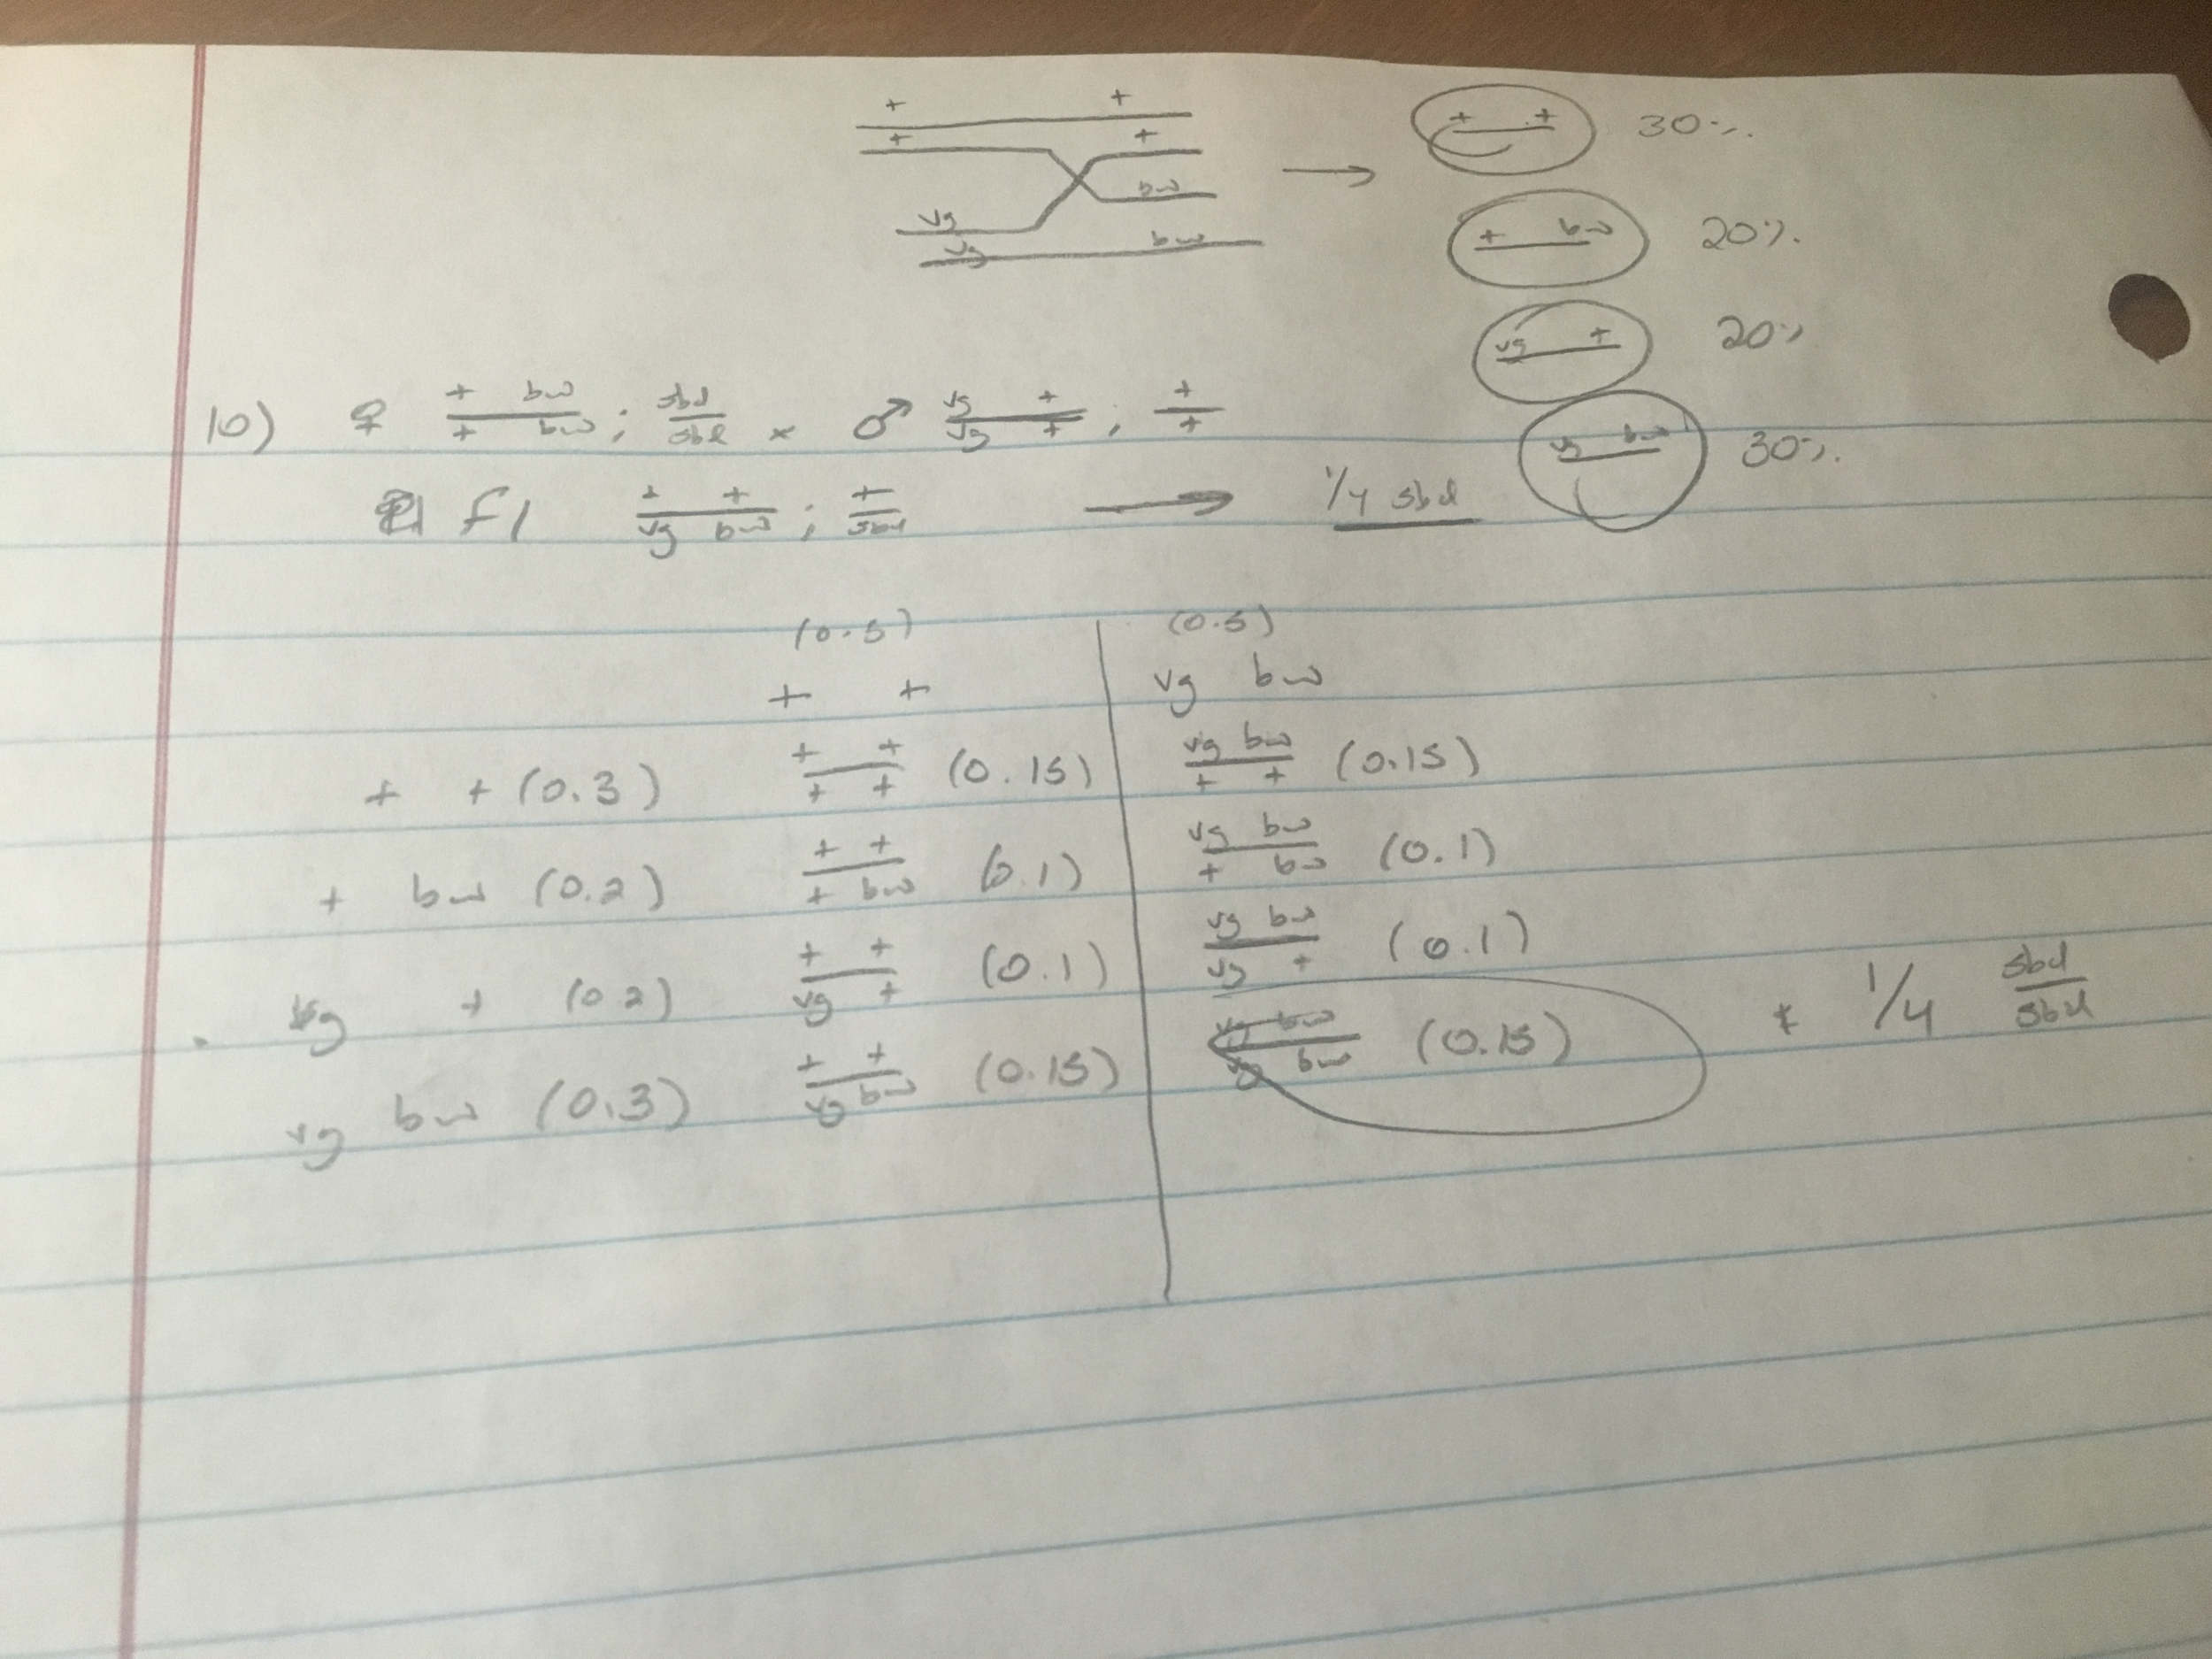 + +
+ +
bw
vg
vg bw
+ + 30%.
+ bw 20%.
vg + 20%
vg bw 30%.
10) ♀ + bw / + bw ; sbd / sbd × ♂ vg + / vg + ; + / +
F1 + + / vg bw ; + / sbd → 1/4 sbd
(0.5) (0.5)
+ + vg bw
+ + (0.3) + + / + + (0.15) vg bw / + + (0.15)
+ bw (0.2) + + / + bw (0.1) vg bw / + bw (0.1)
vg + (0.2) + + / vg + (0.1) vg bw / vg + (0.1)
vg bw (0.3) + + / vg bw (0.15) vg bw / vg bw (0.15) * 1/4 sbd / sbd